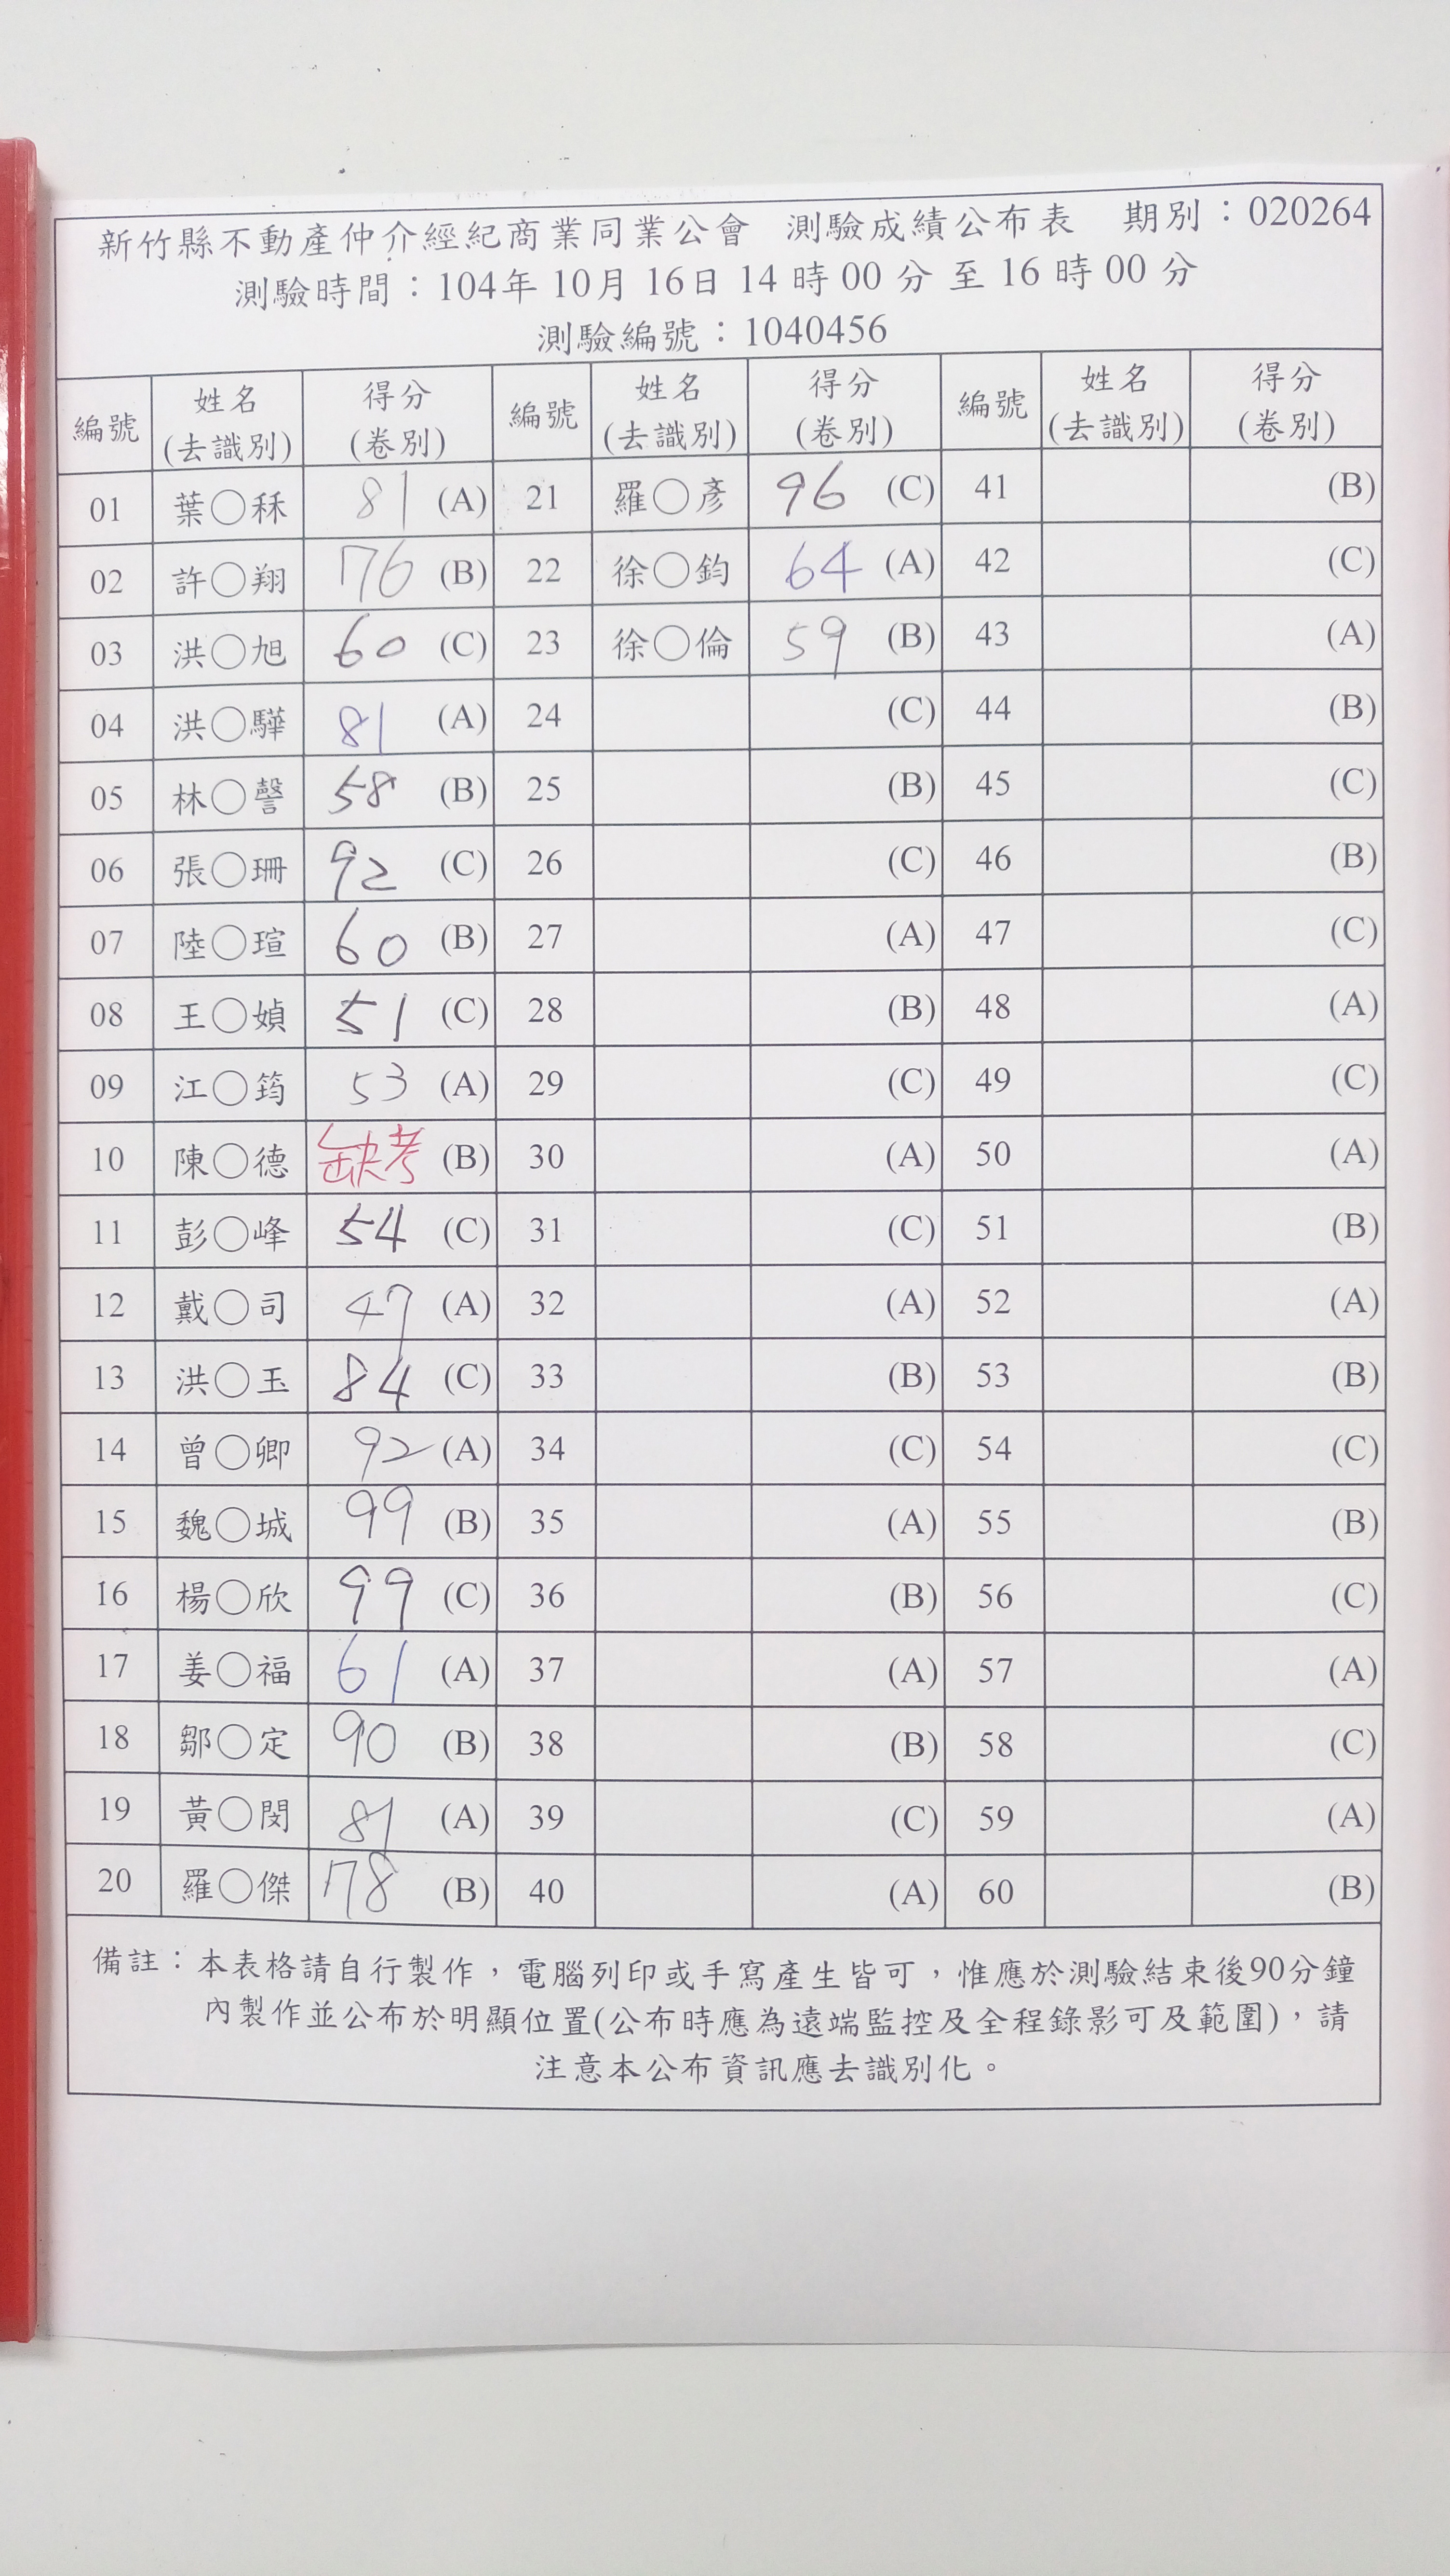 新竹縣不動產仲介經紀商業同業公會 測驗成績公布表 期別：020264
測驗時間：104年 10月 16日 14 時 00 分 至 16 時 00 分
測驗編號：1040456
編號 姓名 (去識別) 得分 (卷別) 編號 姓名 (去識別) 得分 (卷別) 編號 姓名 (去識別) 得分 (卷別)
01 葉○秝 81 (A) 21 羅○彥 96 (C) 41 (B)
02 許○翔 76 (B) 22 徐○鈞 64 (A) 42 (C)
03 洪○旭 60 (C) 23 徐○倫 59 (B) 43 (A)
04 洪○驊 81 (A) 24 (C) 44 (B)
05 林○謦 58 (B) 25 (B) 45 (C)
06 張○珊 92 (C) 26 (C) 46 (B)
07 陸○瑄 60 (B) 27 (A) 47 (C)
08 王○媜 51 (C) 28 (B) 48 (A)
09 江○筠 53 (A) 29 (C) 49 (C)
10 陳○德 缺考 (B) 30 (A) 50 (A)
11 彭○峰 54 (C) 31 (C) 51 (B)
12 戴○司 47 (A) 32 (A) 52 (A)
13 洪○玉 84 (C) 33 (B) 53 (B)
14 曾○卿 92 (A) 34 (C) 54 (C)
15 魏○城 99 (B) 35 (A) 55 (B)
16 楊○欣 99 (C) 36 (B) 56 (C)
17 姜○福 61 (A) 37 (A) 57 (A)
18 鄒○定 90 (B) 38 (B) 58 (C)
19 黃○閔 81 (A) 39 (C) 59 (A)
20 羅○傑 78 (B) 40 (A) 60 (B)
備註：本表格請自行製作，電腦列印或手寫產生皆可，惟應於測驗結束後90分鐘
內製作並公布於明顯位置(公布時應為遠端監控及全程錄影可及範圍)，請
注意本公布資訊應去識別化。